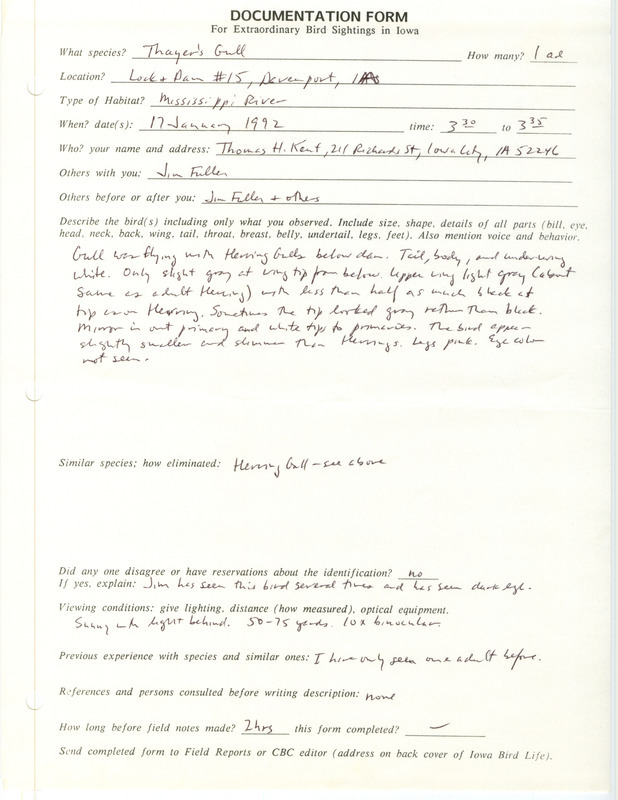 DOCUMENTATION FORM
For Extraordinary Bird Sightings in Iowa
What species? Thayer's Gull How many? 1 ad
Location? Lock & Dam #15, Davenport, IA
Type of Habitat? Mississippi River
When? date(s): 17 January 1992 time: 3 30 to 3 35
Who? your name and address: Thomas H. Kent, 211 Richards St, Iowa City, IA 52246
Others with you: Jim Fuller
Others before or after you: Jim Fuller + others
Describe the bird(s) including only what you observed. Include size, shape, details of all parts (bill, eye,
head, neck, back, wing, tail, throat, breast, belly, undertail, legs, feet). Also mention voice and behavior.
Gull was flying with Herring Gulls below dam. Tail, body, and underwing
white. Only slight gray at wing tip from below. Upper wing light gray (about
same as adult Herring) with less than half as much black at
tip as on Herring. Sometimes the tip looked gray rather than black.
Mirror in out primary and white tips to primaries. The bird appear
slightly smaller and slimmer than Herrings. Legs pink. Eye color
not seen.
Similar species; how eliminated: Herring Gull - see above
Did any one disagree or have reservations about the identification? no
If yes, explain: Jim has seen this bird several times and has seen dark eye.
Viewing conditions: give lighting, distance (how measured), optical equipment.
Sunny with light behind. 50-75 yards. 10x binocular.
Previous experience with species and similar ones: I have only seen one adult before.
References and persons consulted before writing description: none
How long before field notes made? 2 hrs this form completed? —
Send completed form to Field Reports or CBC editor (address on back cover of Iowa Bird Life).